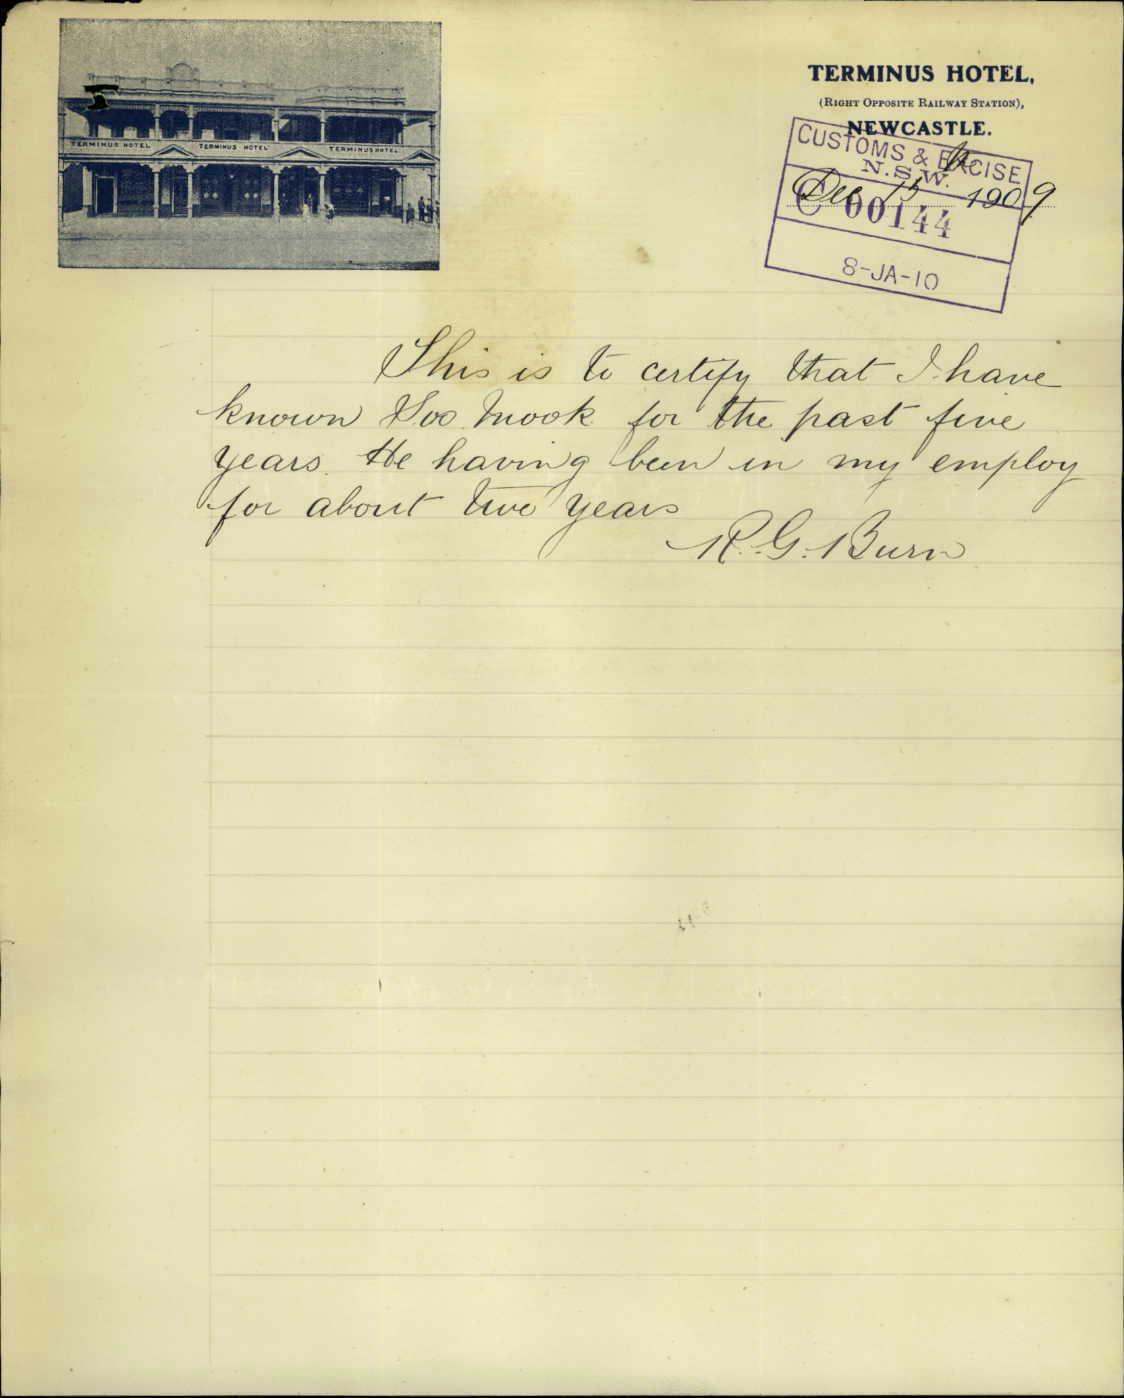 TERMINUS HOTEL TERMINUS HOTEL TERMINUS HOTEL
TERMINUS HOTEL,
(RIGHT OPPOSITE RAILWAY STATION),
NEWCASTLE.
CUSTOMS & EXCISE
N.S.W.
Dec 15 1909
C 00144
8-JA-10
This is to certify that I have
known Soo Mook for the past five
years. He having been in my employ
for about two years
R. G. Burn